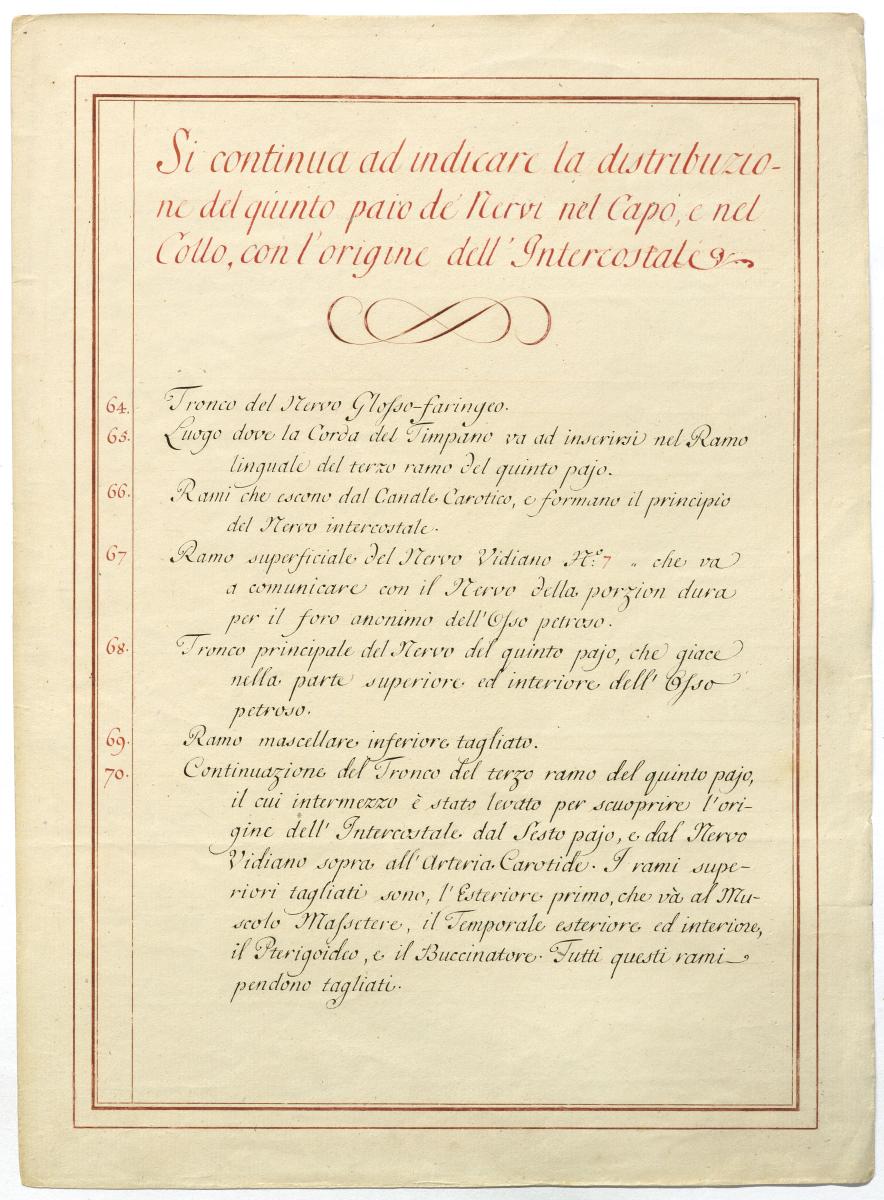 Si continua ad indicare la distribuzio-
ne del quinto paio de' Nervi nel Capo, e nel
Collo, con l'origine dell'Intercostale
64. Tronco del Nervo Glosso-faringeo.
65. Luogo dove la Corda del Timpano va ad inserirsi nel Ramo
linguale del terzo ramo del quinto pajo.
66. Rami che escono dal Canale Carotico, e formano il principio
del Nervo intercostale.
67 Ramo superficiale del Nervo Vidiano N.º 7 „ che va
a comunicare con il Nervo della porzion dura
per il foro anonimo dell'Osso petroso.
68. Tronco principale del Nervo del quinto pajo, che giace
nella parte superiore ed interiore dell'Osso
petroso.
69. Ramo mascellare inferiore tagliato.
70. Continuazione del Tronco del terzo ramo del quinto pajo,
il cui intermezzo è stato levato per scuoprire l'ori-
gine dell'Intercostale dal Sesto pajo, e dal Nervo
Vidiano sopra all'Arteria Carotide. I rami supe-
riori tagliati sono, l'Esteriore primo, che và al Mu-
scolo Massetere, il Temporale esteriore ed interiore,
il Pterigoideo, e il Buccinatore. Tutti questi rami
pendono tagliati.